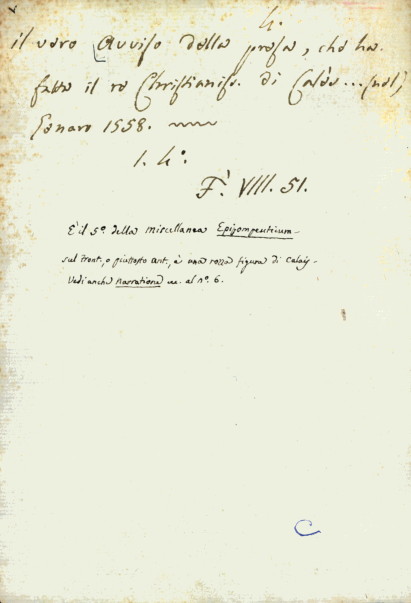 4.
il vero Avviso della presa, che ha
fatta il re Christianiss. di Cales... (nel)
Genaro 1558.
1. 4°.
F. VIII. 51.
È il 5° della miscellanea Epizompeuticum
sul front., o piuttosto ant., è una rozza figura di Calais.
Vedi anche narratione ec. al n°. 6.
C